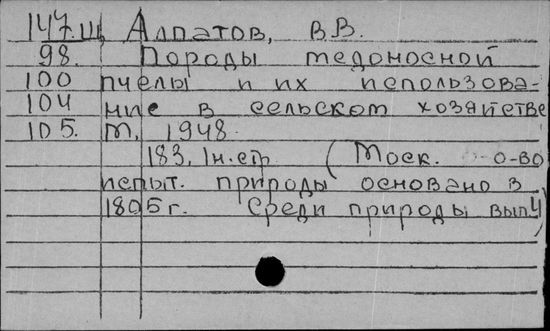 147.Ш, Алпатов, В.В.
98. Породы медоносной
100 пчелы и их использова-
104 ние в сельском хозяйстве
105. М, 1948.
183, 1н.стр (Моск. о-во
испыт. природы основано в
1805г. Среди природы вып.4)